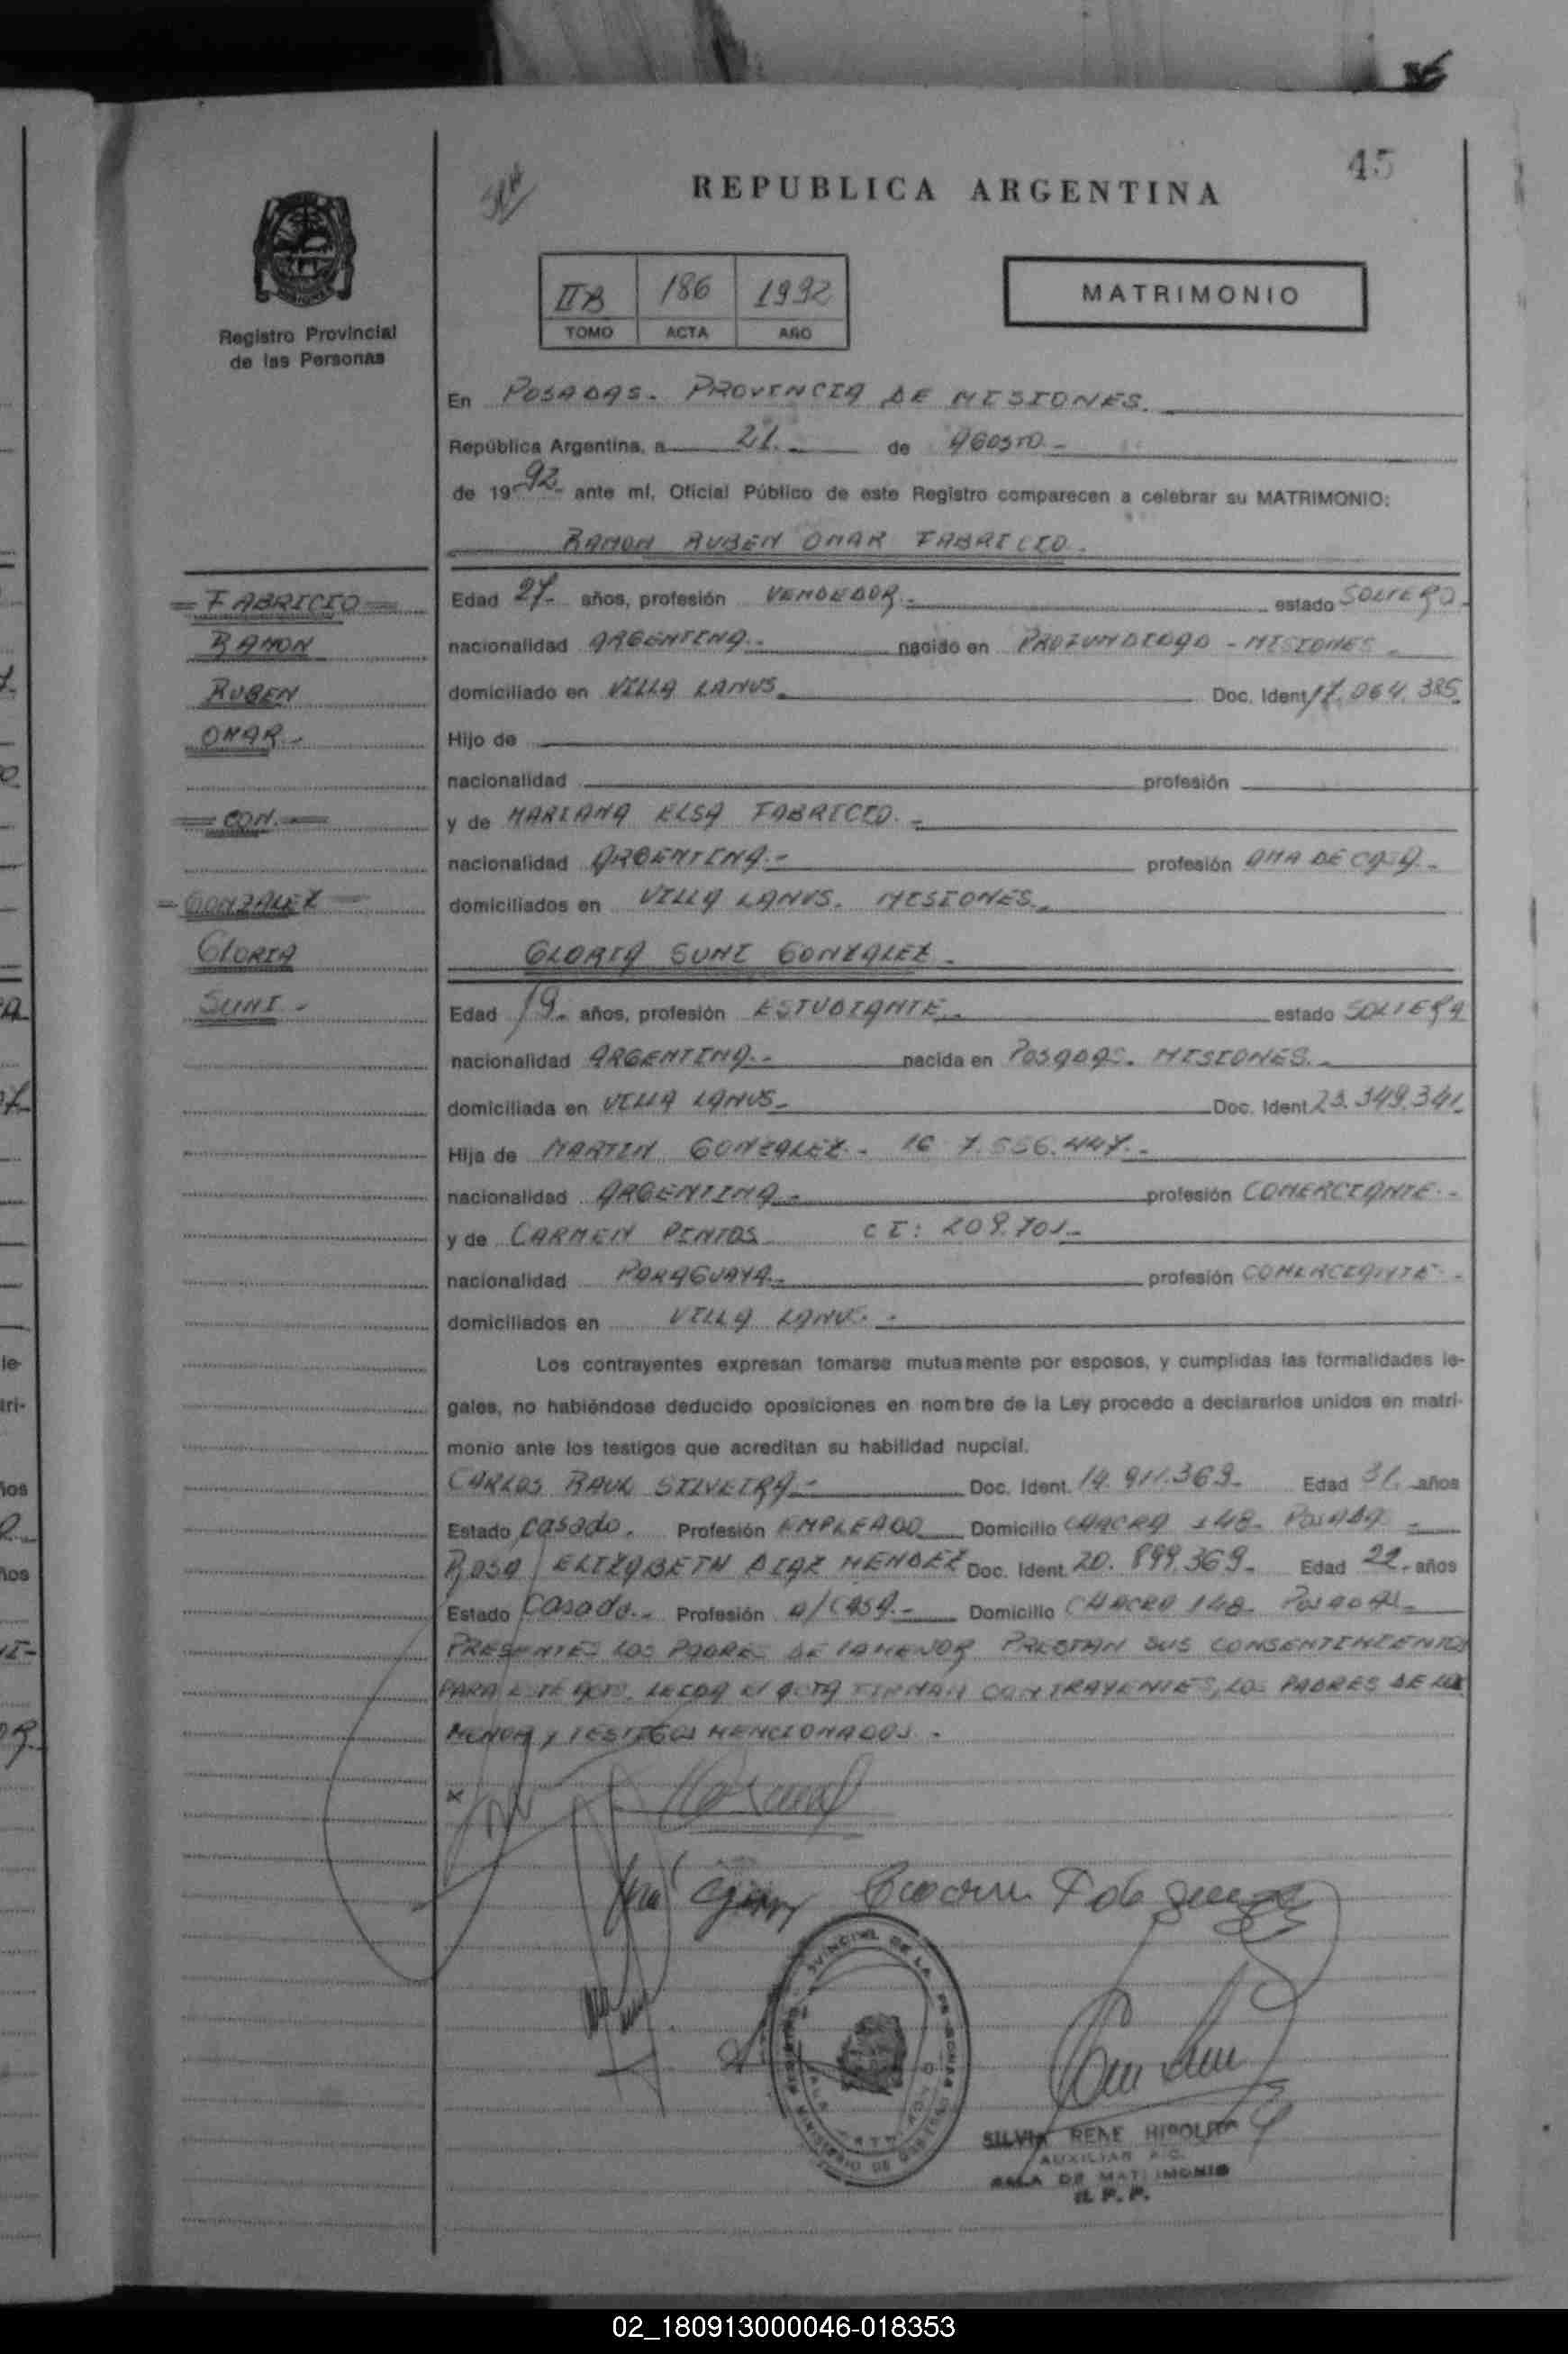 45
REPUBLICA ARGENTINA
IIB 186 1992
TOMO ACTA AÑO
MATRIMONIO
Registro Provincial
de las Personas
En POSADAS. PROVINCIA DE MISIONES.
República Argentina, a 21. de AGOSTO.-
de 19 92- ante mí, Oficial Público de este Registro comparecen a celebrar su MATRIMONIO:
RAMON RUBEN OMAR FABRICIO.
=FABRICIO=
RAMON
RUBEN
OMAR.-
=CON.=
-GONZALEZ-
GLORIA
SUNI.-
Edad 27- años, profesión VENDEDOR.- estado SOLTERO.
nacionalidad ARGENTINA.- nacido en PROFUNDIDAD - MISIONES.
domiciliado en VILLA LANUS. Doc. Ident 17.064.385.
Hijo de
nacionalidad profesión
y de MARIANA ELSA FABRICIO.-
nacionalidad ARGENTINA.- profesión AMA DE CASA.-
domiciliados en VILLA LANUS. MISIONES.
GLORIA SUNI GONZALEZ.
Edad 19.- años, profesión ESTUDIANTE.- estado SOLTERA
nacionalidad ARGENTINA.- nacida en POSADAS. MISIONES.-
domiciliada en VILLA LANUS- Doc. Ident 23.349.341.
Hija de MARTIN GONZALEZ.- 7.556.447.-
nacionalidad ARGENTINA- profesión COMERCIANTE.-
y de CARMEN PINTOS CI: 209.701-
nacionalidad PARAGUAYA.- profesión COMERCIANTE.-
domiciliados en VILLA LANUS.-
Los contrayentes expresan tomarse mutuamente por esposos, y cumplidas las formalidades le-
gales, no habiéndose deducido oposiciones en nombre de la Ley procedo a declararlos unidos en matri-
monio ante los testigos que acreditan su habilidad nupcial.
CARLOS RAUL SILVEIRA- Doc. Ident. 14.911.369- Edad 31. años
Estado casado. Profesión EMPLEADO Domicilio CHACRA 148. POSADAS -
ROSA ELIZABETH DIAZ MENDEZ Doc. Ident 20.899.369- Edad 22.- años
Estado casada.- Profesión A/CASA.- Domicilio CHACRA 148. POSADAS-
PRESENTES LOS PADRES DE LA MENOR PRESTAN SUS CONSENTIMIENTOS
PARA ESTE ACTO. LEIDA EL ACTA FIRMAN CONTRAYENTES, LOS PADRES DE LA
MENOR Y TESTIGOS MENCIONADOS.-
SILVIA RENE HIPOLITO
AUXILIAR R.C.
SALA DE MATRIMONIO
R.P.P.
02_180913000046-018353